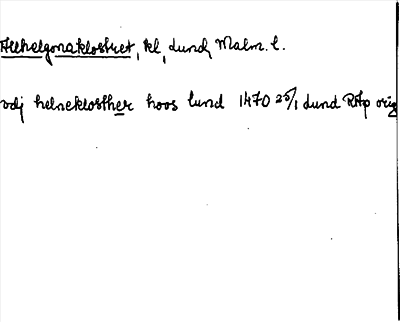 Allhelgonaklostret, kl, Lund, Malm. l.
vdj helneklosther hoos lund 1470 25/1 Lund RAp orig